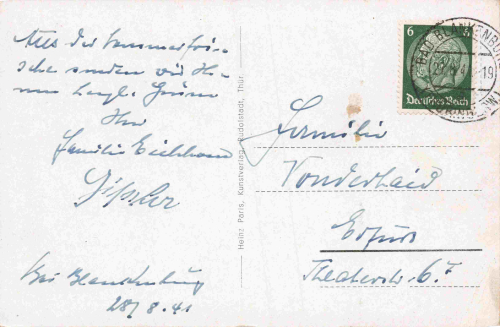 Aus der Sommerfri-
sche senden wir Ih-
nen herzl. Grüsse
Ihre
Familie Eichhorn
Bad Blankenburg
28/8.41
Heinz Paris, Kunstverlag, Rudolstadt, Thür.
6
Deutsches Reich
BAD BLANKENBURG
Familie
Vonderhaid
Erfurt